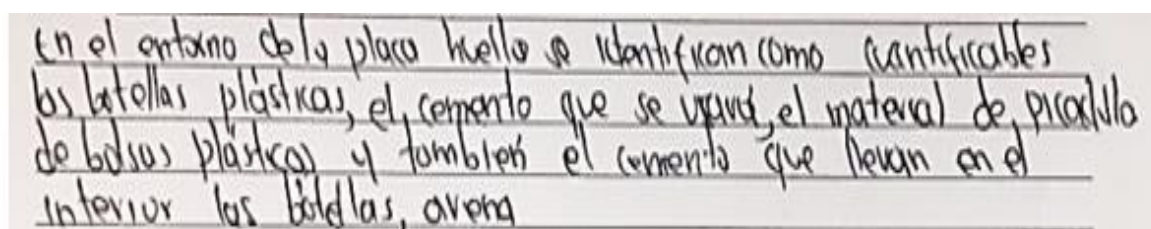 En el entorno de la placa huella se identifican como cuantificables
las botellas plásticas, el cemento que se usará, el material de picadillo
de bolsas plásticas y tambien el cemento que llevan en el
interior las botellas, arena